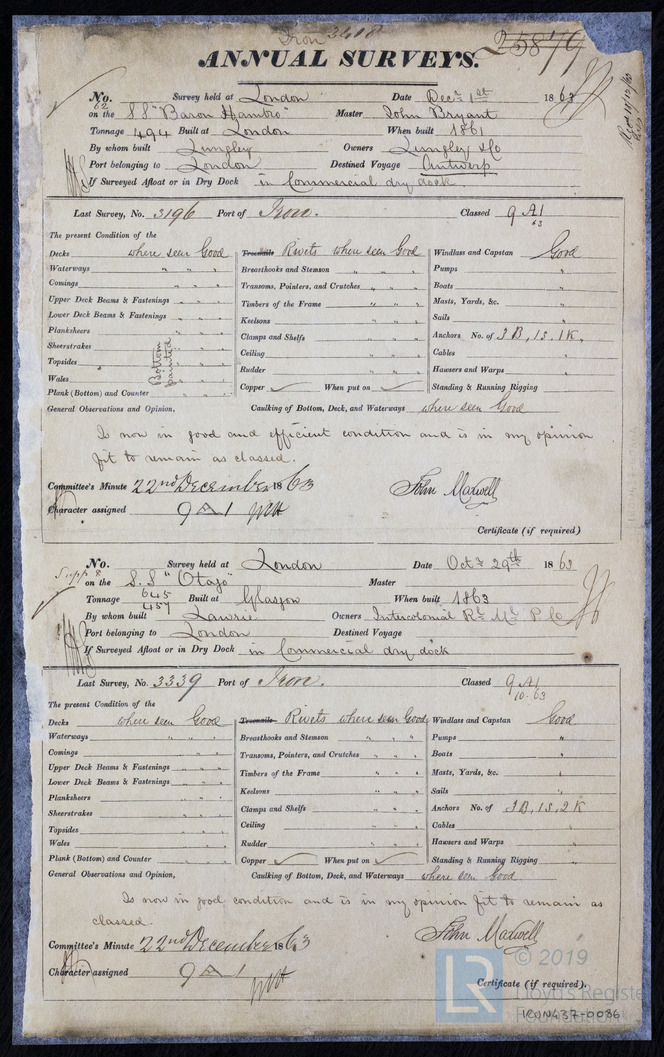 Iron 3418
25879
ANNUAL SURVEYS.
No. 62 Survey held at London Date Decr 1st 1863
on the SS "Baron Hambro" Master John Bryant
Tonnage 494 Built at London When built 1861
By whom built Lungley Owners Lungley & Co
Port belonging to London Destined Voyage Antwerp
If Surveyed Afloat or in Dry Dock in Commercial dry dock
Last Survey, No. 3196 Port of Iron. Classed 9 A1
63
The present Condition of the
Decks where seen Good Treenails Rivets where seen Good Windlass and Capstan Good
Waterways " " " Breasthooks and Stemson " " " Pumps "
Comings " " " Transoms, Pointers, and Crutches " " " Boats "
Upper Deck Beams & Fastenings " " " Timbers of the Frame " " " Masts, Yards, &c. "
Lower Deck Beams & Fastenings " " " Keelsons " " " Sails "
Planksheers " " " Clamps and Shelfs " " " Anchors No. of 3 B, 1 S, 1 K,
Sheerstrakes " " " Ceiling " " " Cables "
Topsides " " " Rudder " " " Hawsers and Warps "
Wales " " " Copper ✓ When put on ✓ Standing & Running Rigging "
Bottom painted
Plank (Bottom) and Counter " " "
General Observations and Opinion, Caulking of Bottom, Deck, and Waterways where seen Good
Is now in good and efficient condition and is in my opinion
fit to remain as classed.
Committee's Minute 22nd December 1863 John Maxwell
Character assigned 9 A 1
Certificate (if required)
No. Survey held at London Date Octr 29th 1863
on the S.S "Otago" Master
Tonnage 645 457 Built at Glasgow When built 1863
By whom built Lawrie Owners Intercolonial Rl Ml P Co
Port belonging to London Destined Voyage
If Surveyed Afloat or in Dry Dock in Commercial dry dock
Last Survey, No. 3339 Port of Iron. Classed 9 A1
10.63
The present Condition of the
Decks where seen Good Treenails Rivets where seen Good Windlass and Capstan Good
Waterways " " " Breasthooks and Stemson " " " Pumps "
Comings " " Transoms, Pointers, and Crutches " " " Boats "
Upper Deck Beams & Fastenings " " " Timbers of the Frame " " " Masts, Yards, &c. "
Lower Deck Beams & Fastenings " " " Keelsons " " " Sails "
Planksheers " " " Clamps and Shelfs " " " Anchors No. of 3 B, 1 S, 2 K
Sheerstrakes " " " Ceiling " " " Cables "
Topsides " " " Rudder " " " Hawsers and Warps "
Wales " " " Copper ✓ When put on ✓ Standing & Running Rigging "
Plank (Bottom) and Counter " " "
General Observations and Opinion, Caulking of Bottom, Deck, and Waterways where seen Good
Is now in good condition and is in my opinion fit to remain as
classed.
Committee's Minute 22nd December 1863 John Maxwell
Character assigned 9 A 1
Certificate (if required).
© 2019
LR Lloyd's Register
Foundation
IRON437-0086